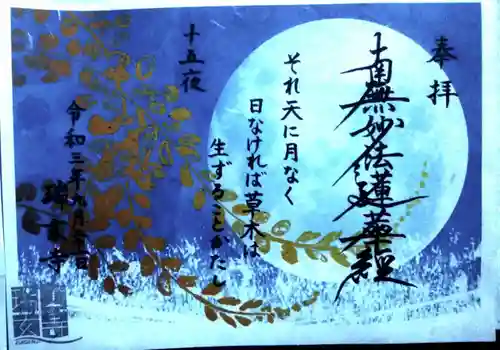 奉拝
南無妙法蓮華経
それ天に月なく
日なければ草木は
生ずることかたし
十五夜
令和三年九月